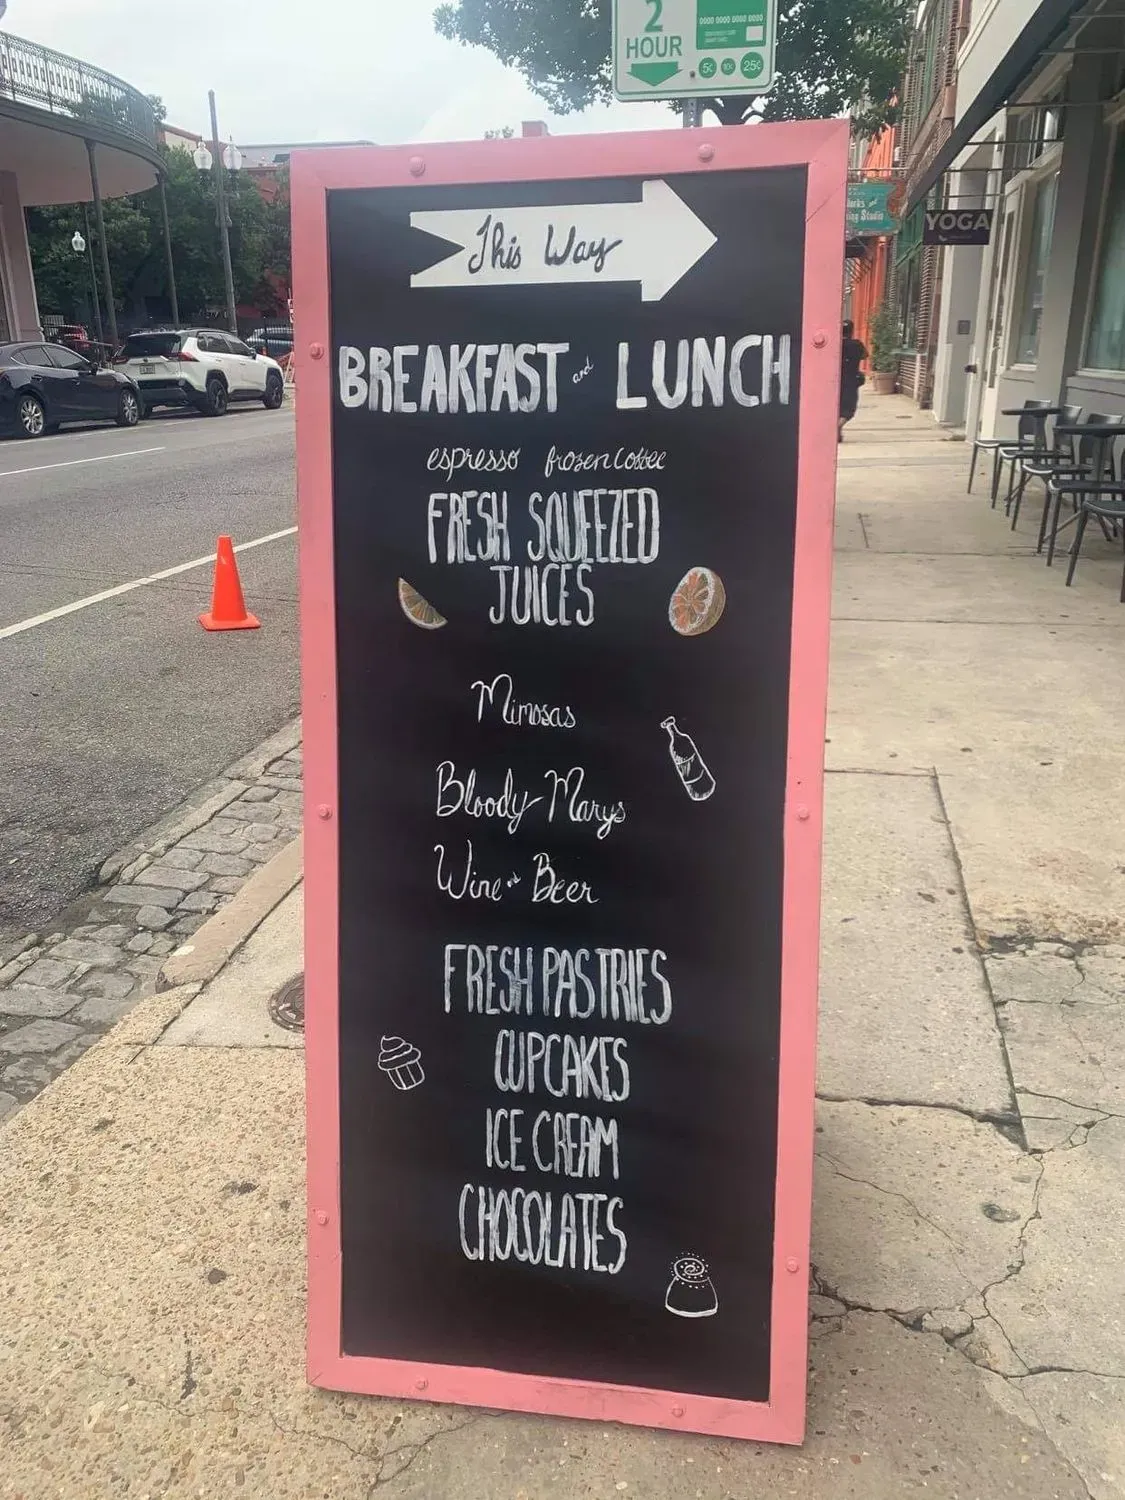 2
HOUR
0000 0000 0000 0000
5¢ 10¢ 25¢
YOGA
This Way
BREAKFAST and LUNCH
espresso frozen coffee
FRESH SQUEEZED
JUICES
Mimosas
Bloody Marys
Wine and Beer
FRESH PASTRIES
CUPCAKES
ICE CREAM
CHOCOLATES